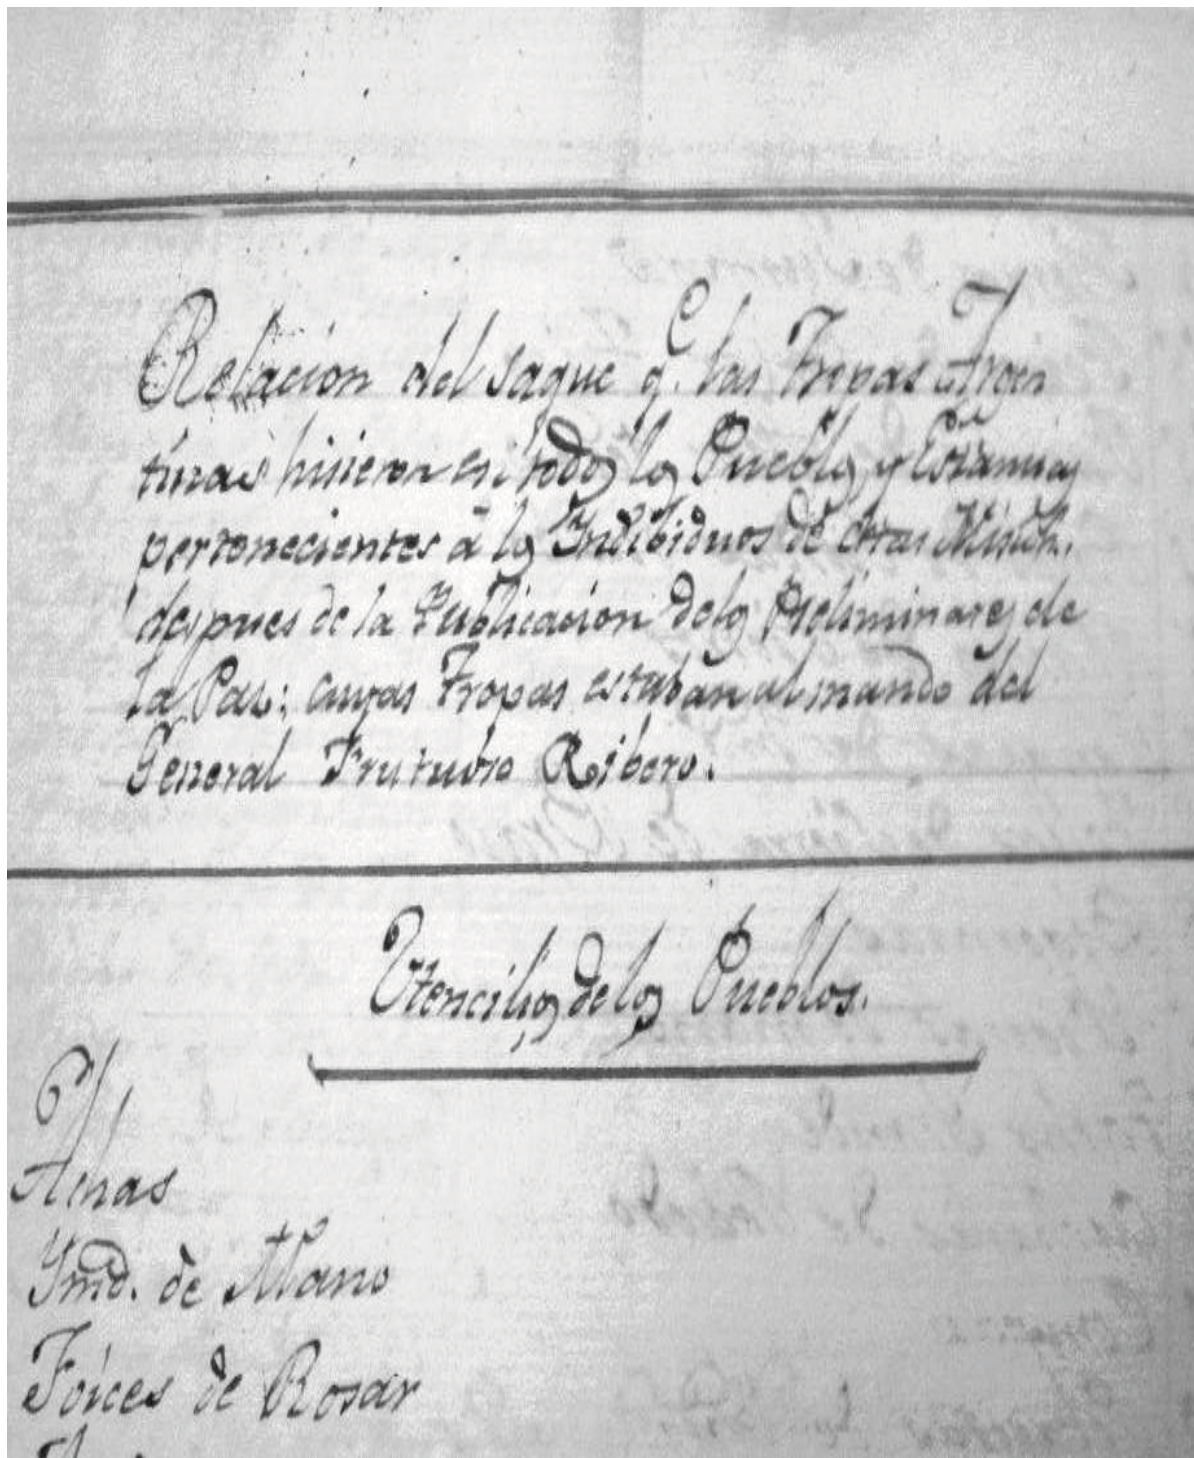 Relacion del saque q.e las Tropas Argen
tinas hisieron en todos los Pueblos, y Estancias
pertenecientes á los Indibiduos de otras Mision.
despues de la Publicacion delos Preliminares de
la Paz; cuyas Tropas estaban al mando del
General Frutuoso Ribero.
Utencilios de los Pueblos.
Achas
Ymd. de Mano
Foices de Rosar